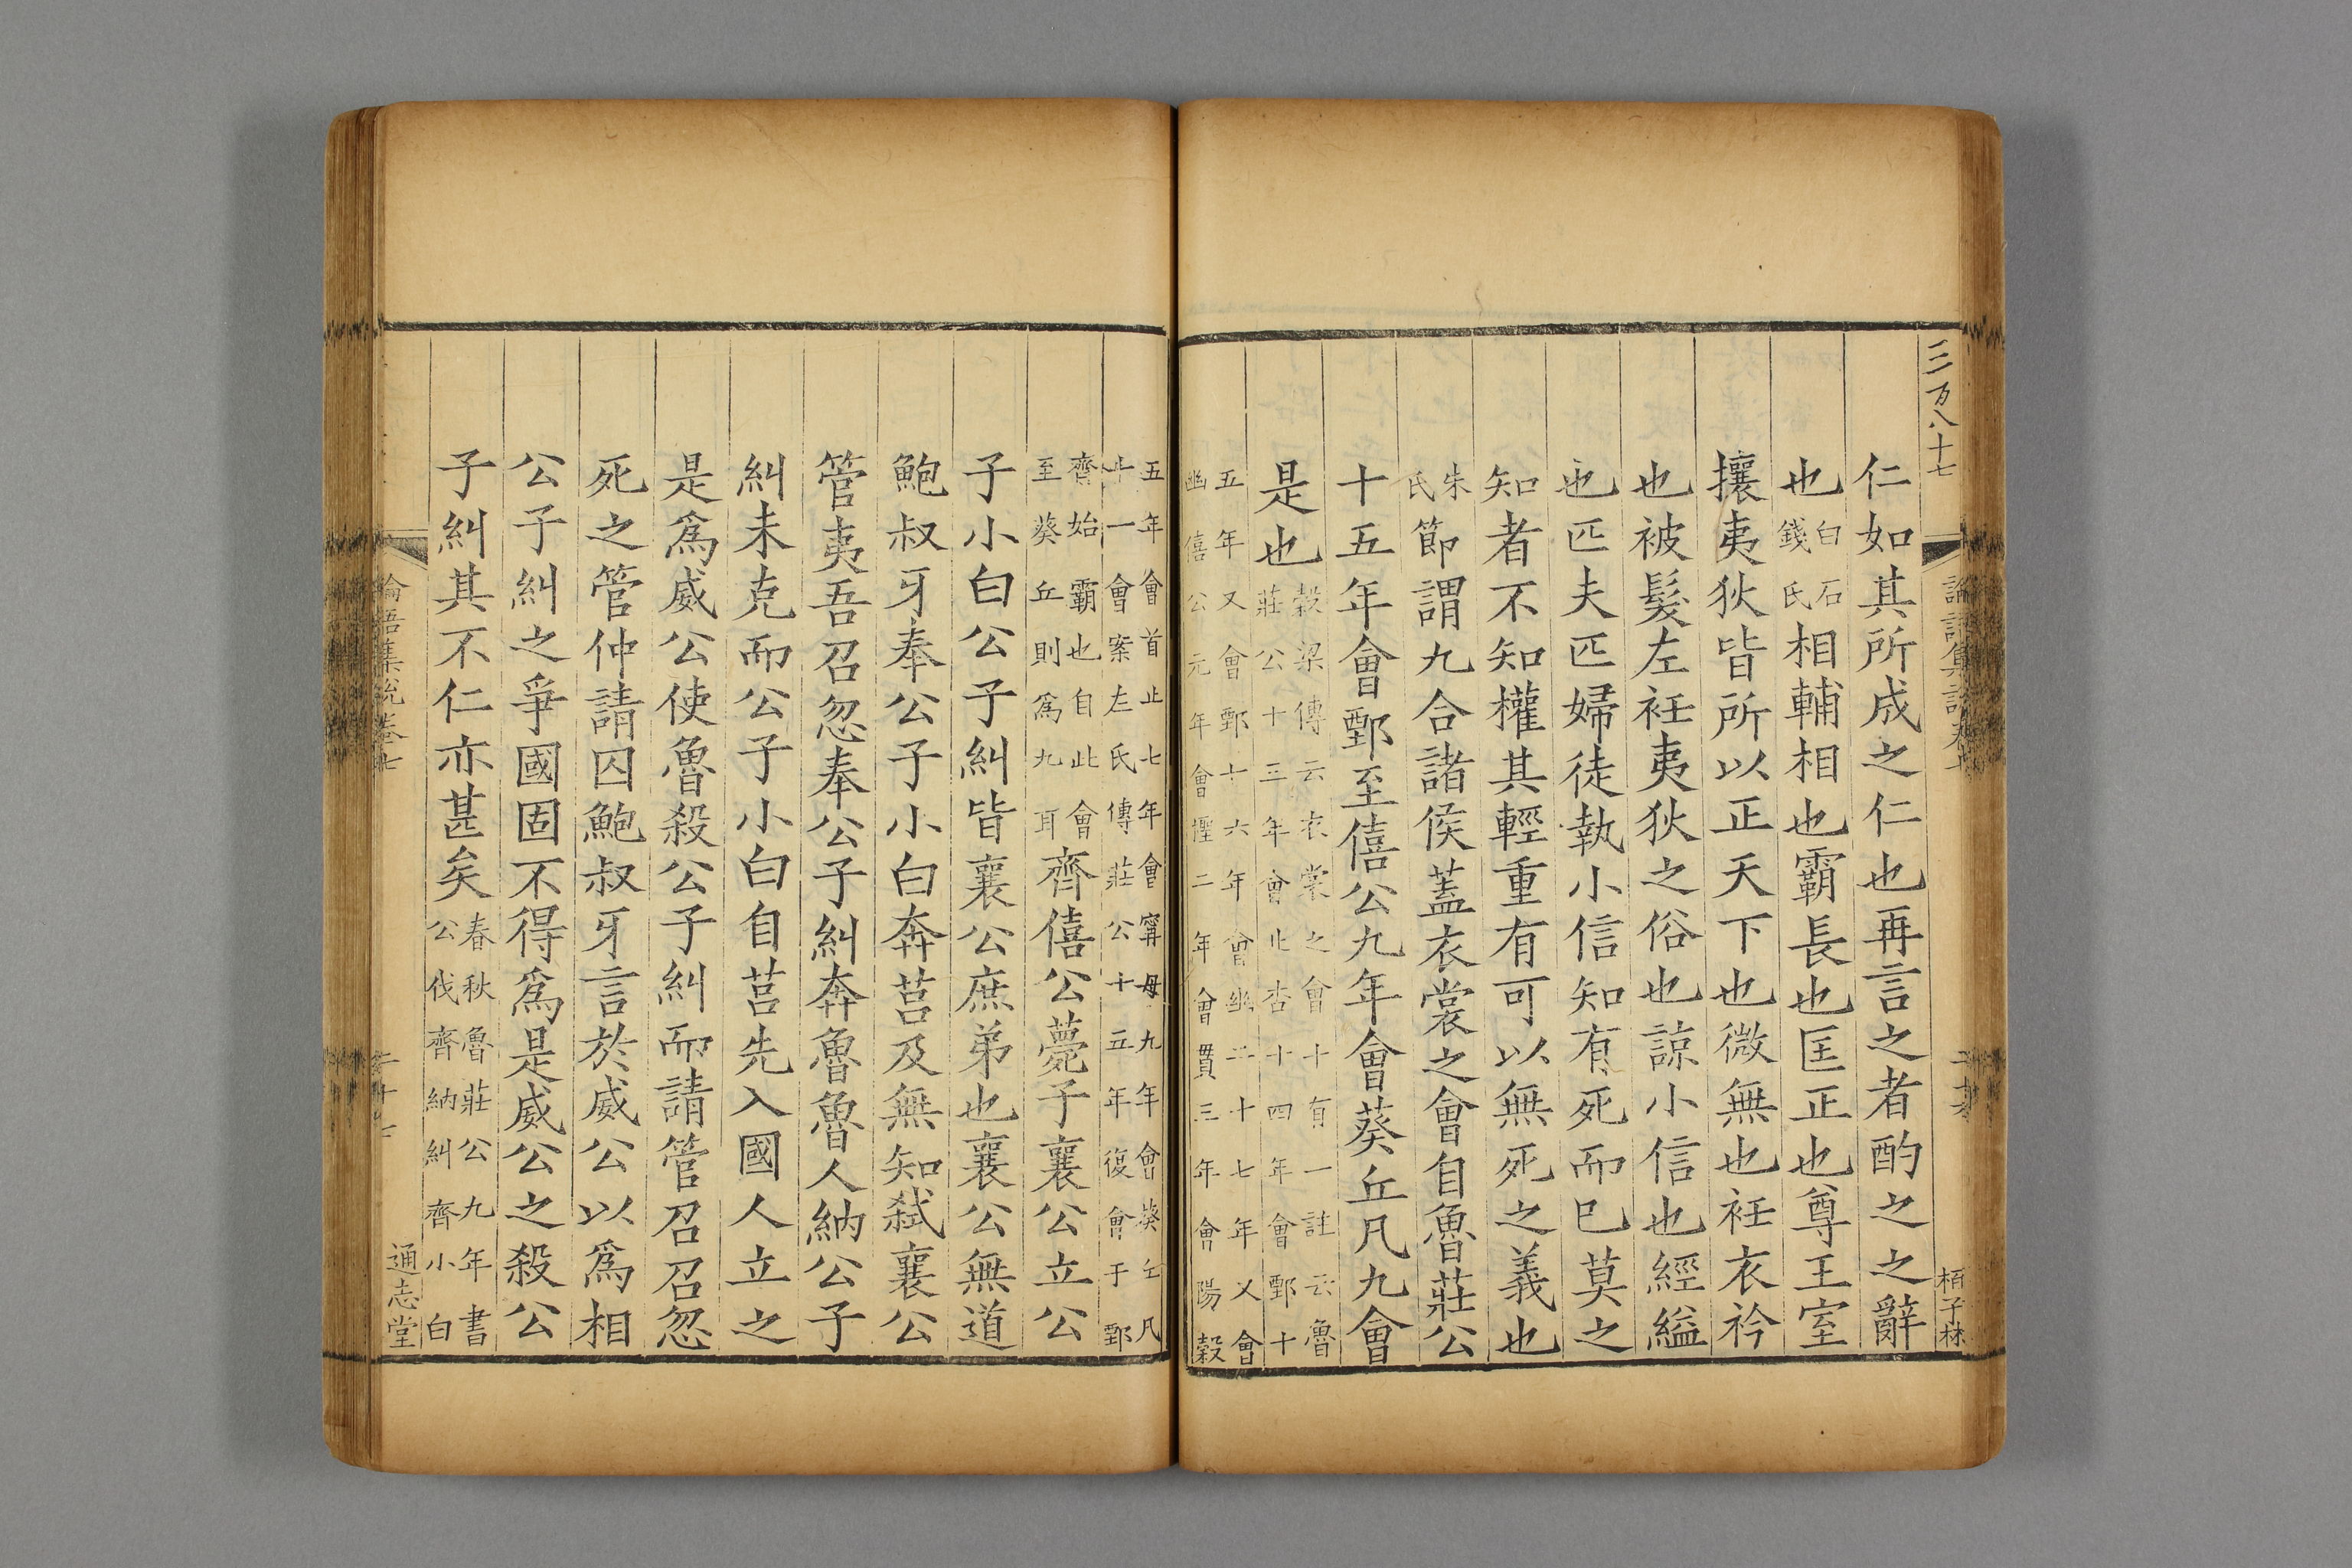 三万八十七
仁如其所成之仁也再言之者酌之之辭
也白石錢氏相輔相也霸長也匡正也尊王室
攘夷狄皆所以正天下也微無也衽衣衿
也被髮左衽夷狄之俗也諒小信也經縊
也匹夫匹婦徒執小信知有死而已莫之
知者不知權其輕重有可以無死之義也
朱氏節謂九合諸侯蓋衣裳之會自魯莊公
十五年會鄄至僖公九年會葵丘凡九會
是也穀梁傳云衣裳之會十有一註云魯莊公十三年會北杏十四年會鄄十
五年又會鄄十六年會幽二十七年又會幽僖公元年會檉二年會貫三年會陽穀
論語集說卷七
栢子林
五年會首止七年會甯母九年會葵丘凡十一會案左氏傳莊公十五年復會于鄄
齊始霸也自此會至葵丘則為九耳齊僖公薨子襄公立公
子小白公子糾皆襄公庶弟也襄公無道
鮑叔牙奉公子小白奔莒及無知弑襄公
管夷吾召忽奉公子糾奔魯魯人納公子
糾未克而公子小白自莒先入國人立之
是爲威公使魯殺公子糾而請管召召忽
死之管仲請囚鮑叔牙言於威公以爲相
公子糾之爭國固不得爲是威公之殺公
子糾其不仁亦甚矣春秋魯莊公九年書公伐齊納糾齊小白
論語集說卷七
二十七
通志堂